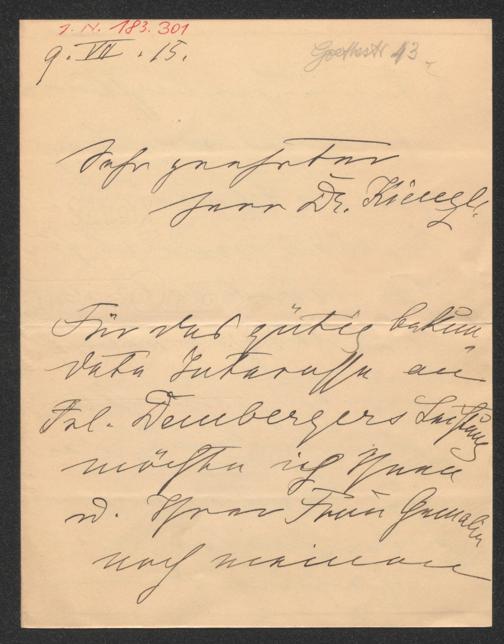 J. N. 183.301
9. VII. 15.
Goethestr 43
Sehr geehrter
Herr Dr. Kienzl.
Für das gütig bekun
dete Interesse an
Frl. Dembergers Leistung
möchte ich Ihnen
u. Ihrer Frau Gemalin
noch meinen